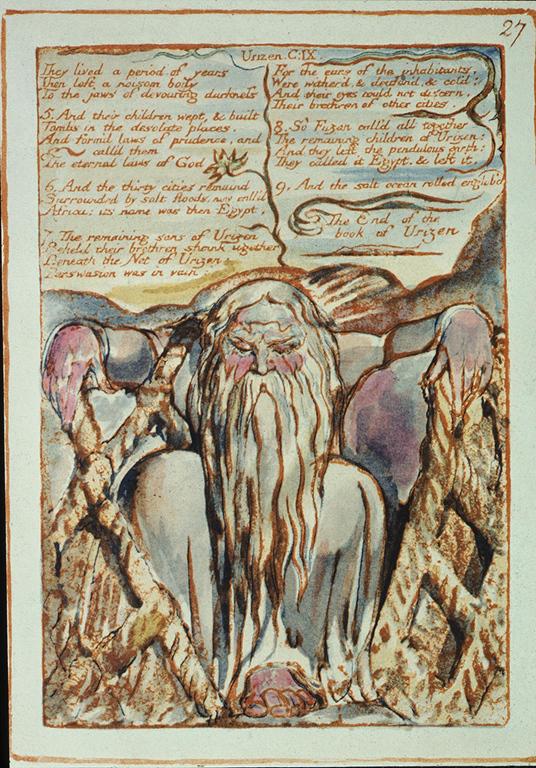 27
Urizen. C: IX
They lived a period of years
Then left a noisom body
To the jaws of devouring darkness
5. And their children wept, & built
Tombs in the desolate places,
And form'd laws of prudence, and
call'd them
The eternal laws of God
6. And the thirty cities remaind
Surrounded by salt floods, now call'd
Africa: its name was then Egypt.
7. The remaining sons of Urizen
Beheld their brethren shrink together
Beneath the Net of Urizen;
Perswasion was in vain;
For the ears of the inhabitants,
Were wither'd, & deafen'd, & cold:
And their eyes could not discern,
Their brethren of other cities.
8. So Fuzon call'd all together
The remaining children of Urizen:
And they left the pendulous earth:
They called it Egypt, & left it.
9. And the salt ocean rolled englob'd
The End of the
book of Urizen